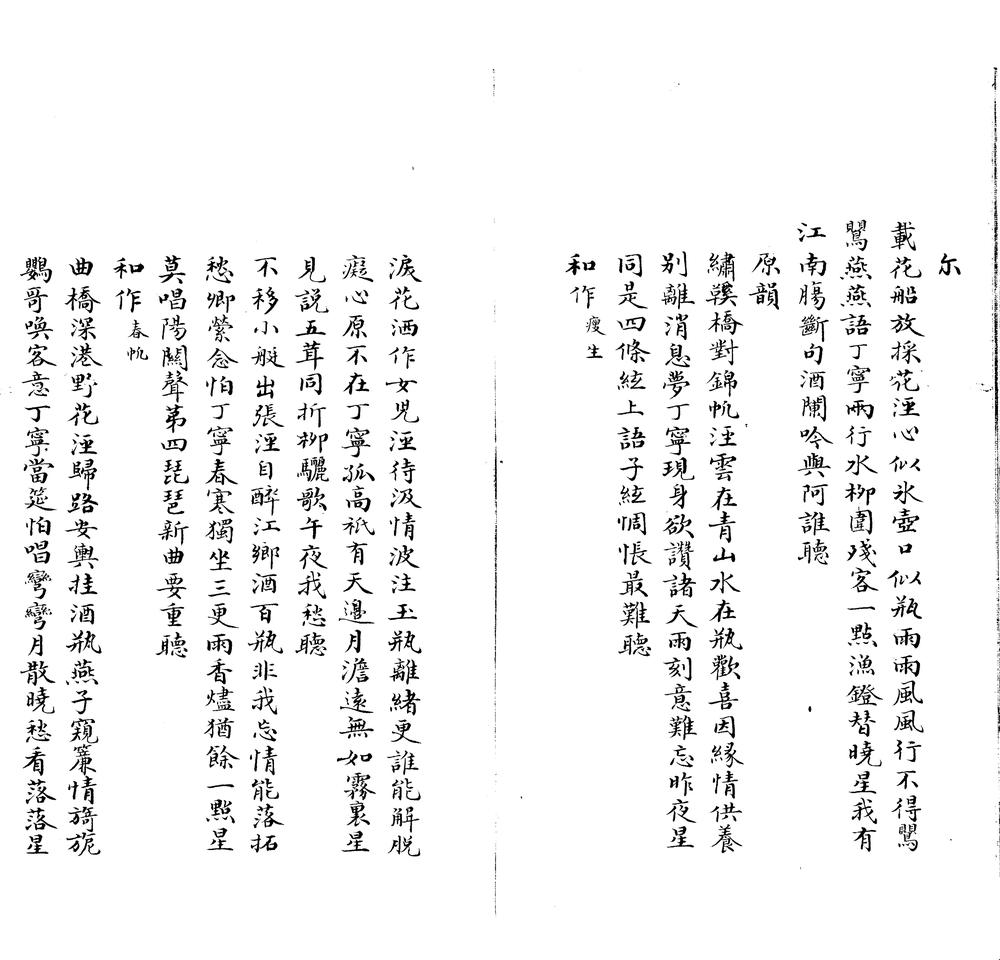 尓
載花船放採花涇心似氷壺口似瓶雨雨風風行不得鶯
鶯燕燕語丁寧兩行水柳圍殘客一點漁鐙替曉星我有
江南腸斷句酒闌吟與阿誰聽
原韻
繡鞵橋對錦帆涇雲在青山水在瓶歡喜因緣情供養
別離消息夢丁寧現身欲讚諸天雨刻意難忘昨夜星
同是四條絃上語子絃惆悵最難聽
和作 瘦生
淚花洒作女児涇待汲情波注玉瓶離緒更誰能解脱
癡心原不在丁寧孤高祇有天邊月澹遠無如霧裏星
見説五茸同折柳驪歌午夜我愁聽
不移小艇出張涇自醉江鄉酒百瓶非我忘情能落拓
愁卿縈念怕丁寧春寒獨坐三更雨香燼猶餘一點星
莫唱陽關聲第四琵琶新曲要重聽
和作 春帆
曲橋深港野花涇歸路安輿挂酒瓶燕子窺簾情旖旎
鸚哥喚客意丁寧當筵怕唱彎彎月散曉愁看落落星